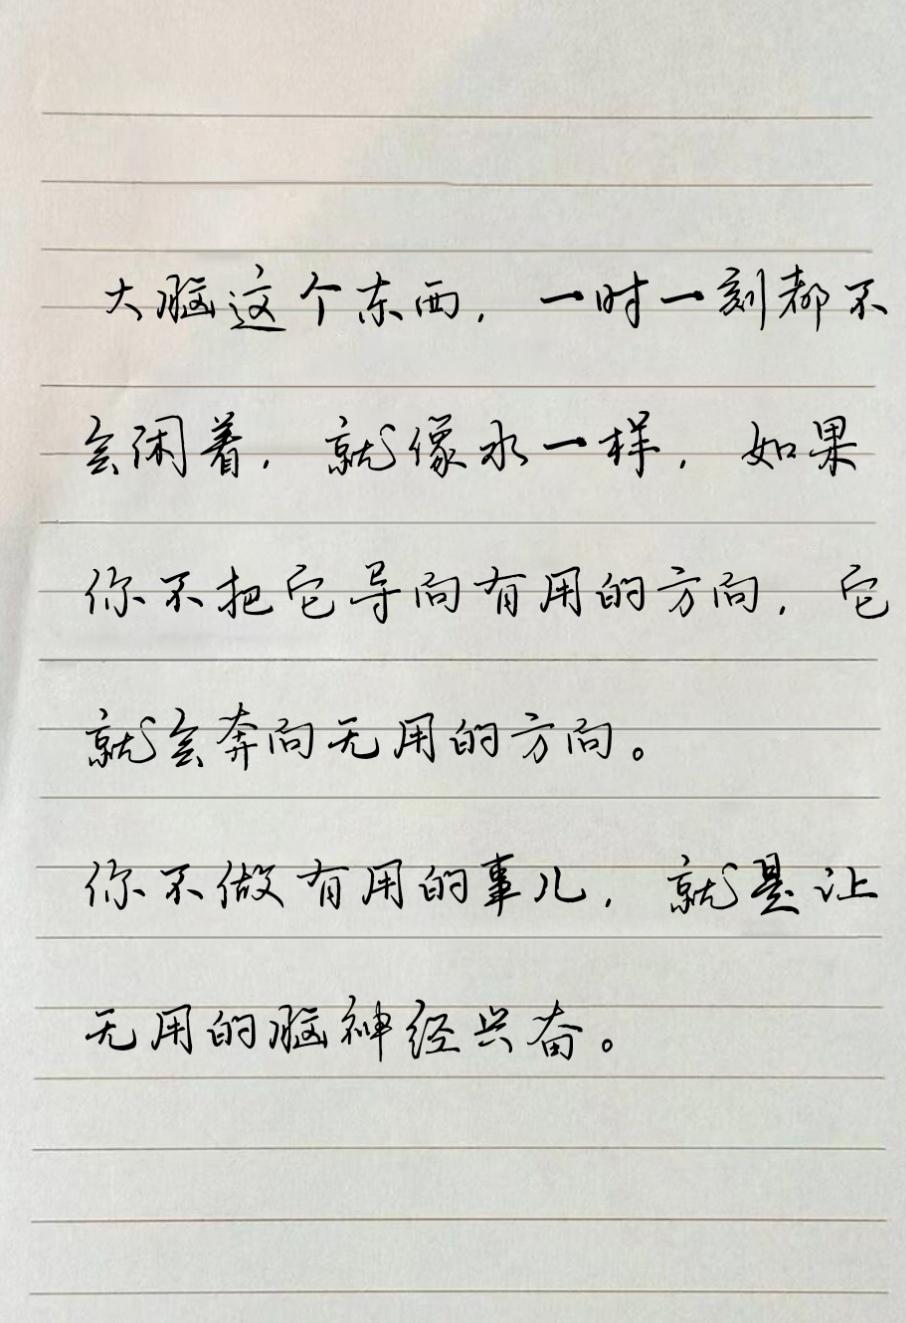 大脑这个东西，一时一刻都不
会闲着，就像水一样，如果
你不把它导向有用的方向，它
就会奔向无用的方向。
你不做有用的事儿，就是让
无用的脑神经兴奋。